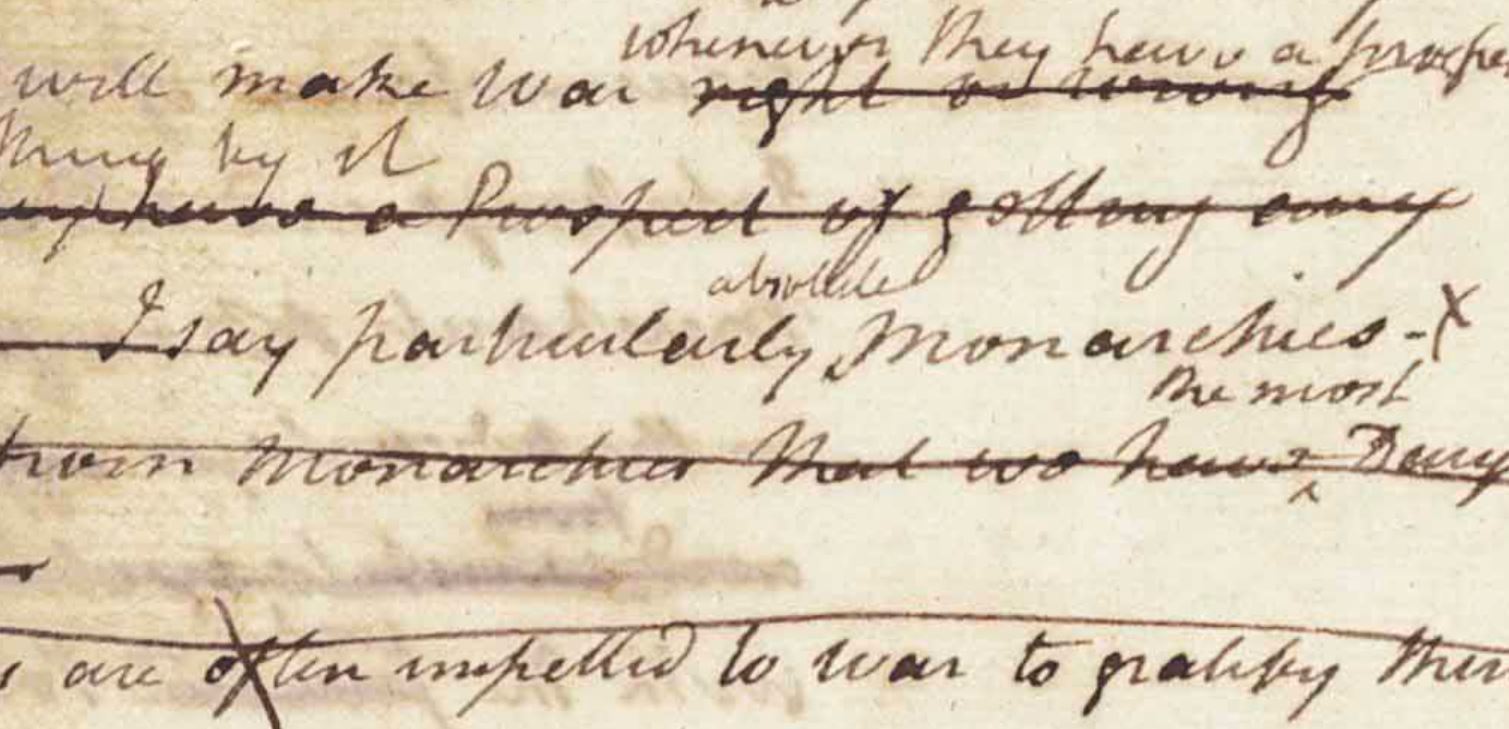 whenever they have a prospe
will make war right or wrong
thing by it
have a Prospect of getting any
absolute
I say particularly Monarchies -
the most
from Monarchies that we have Dang
are often impelled to war to gratify their